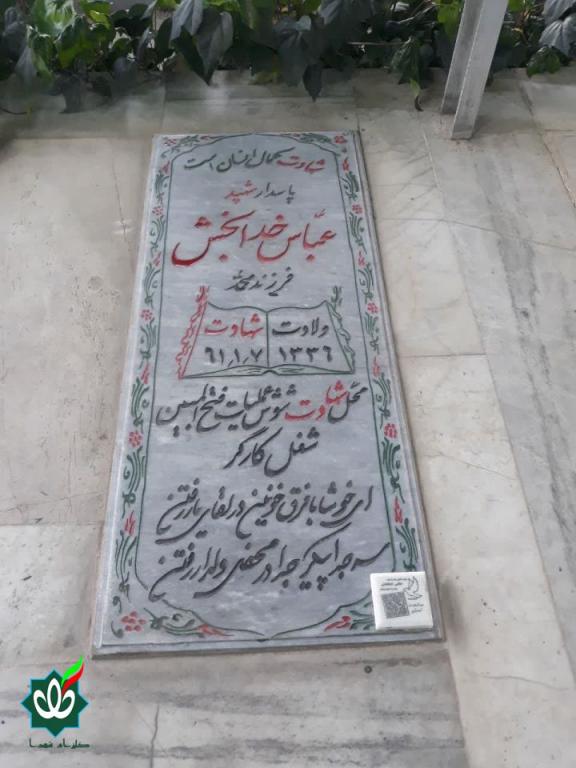 شهادت کمال انسان است
پاسدار شهید
عباس خدابخش
فرزند محمد
ولادت شهادت
۱۳۳۶ ۶۱٫۱٫۷
محل شهادت شوش عملیات فتح المبین
شغل کارگر
ای خوشا با فرق خونین در لقای یار رفتن
سر جدا پیکر جدا در محفل دلدار رفتن
گلزار شهدا